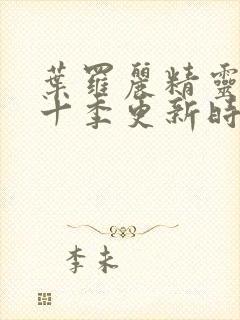 葉羅麗精靈
十季更新時
李未